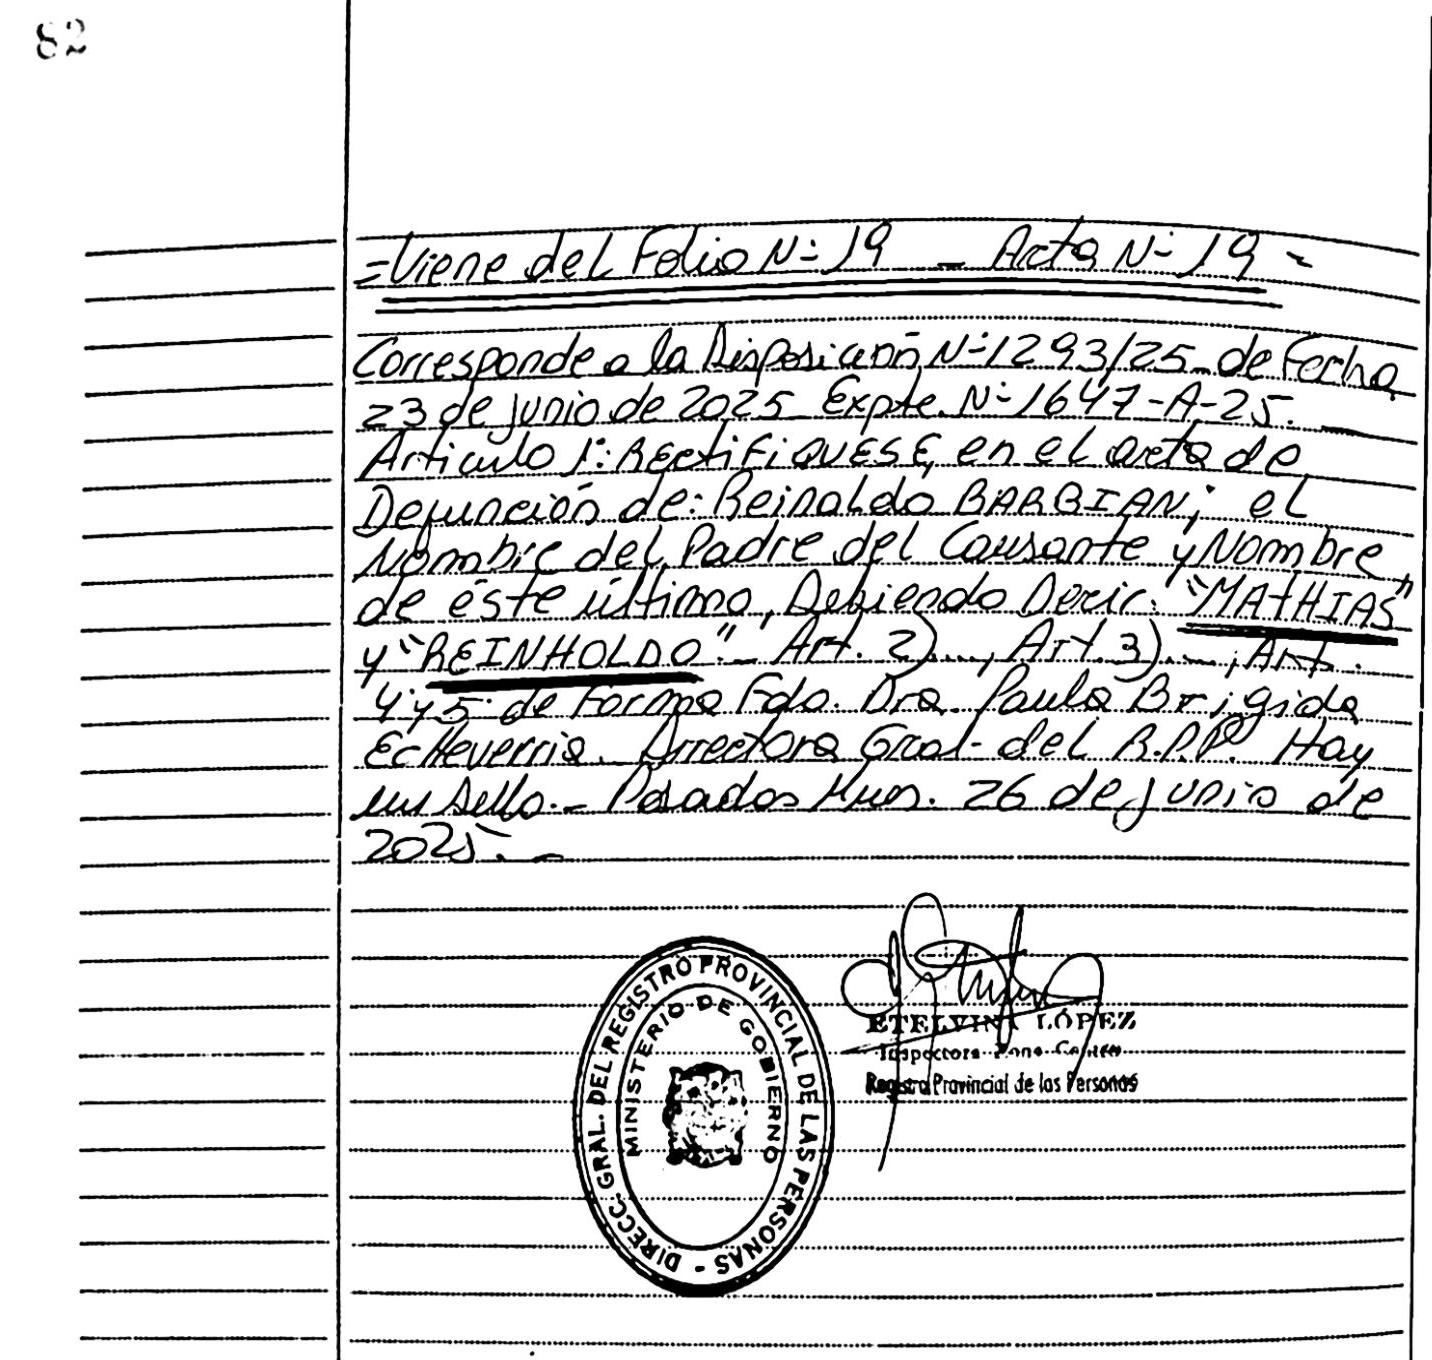 82
=Viene del Folio Nº 19 _ Acta Nº 19 =
Corresponde a la Disposición Nº 1293/25 de Fecha
23 de junio de 2025 Expte. Nº 1647-A-25.__
Articulo 1º: RECTIFIQUESE, en el acta de
Defunción de: Reinaldo BARBIAN; el
Nombre del Padre del Causante y Nombre
de éste último, Debiendo Decir: "MATHIAS"
y "REINHOLDO"._ Art. 2)..., Art. 3)..., Art.
4 y 5 de Forma Fdo. Dra. Paula Brigida
Echeverria. Directora Gral. del R.P.P. Hay
un sello._ Posadas Mnes. 26 de junio de
2025._
DIRECC. GRAL. DEL REGISTRO PROVINCIAL DE LAS PERSONAS -
MINISTERIO DE GOBIERNO
ETELVINA LÓPEZ
Inspectora Zona Centro
Registro Provincial de las Personas